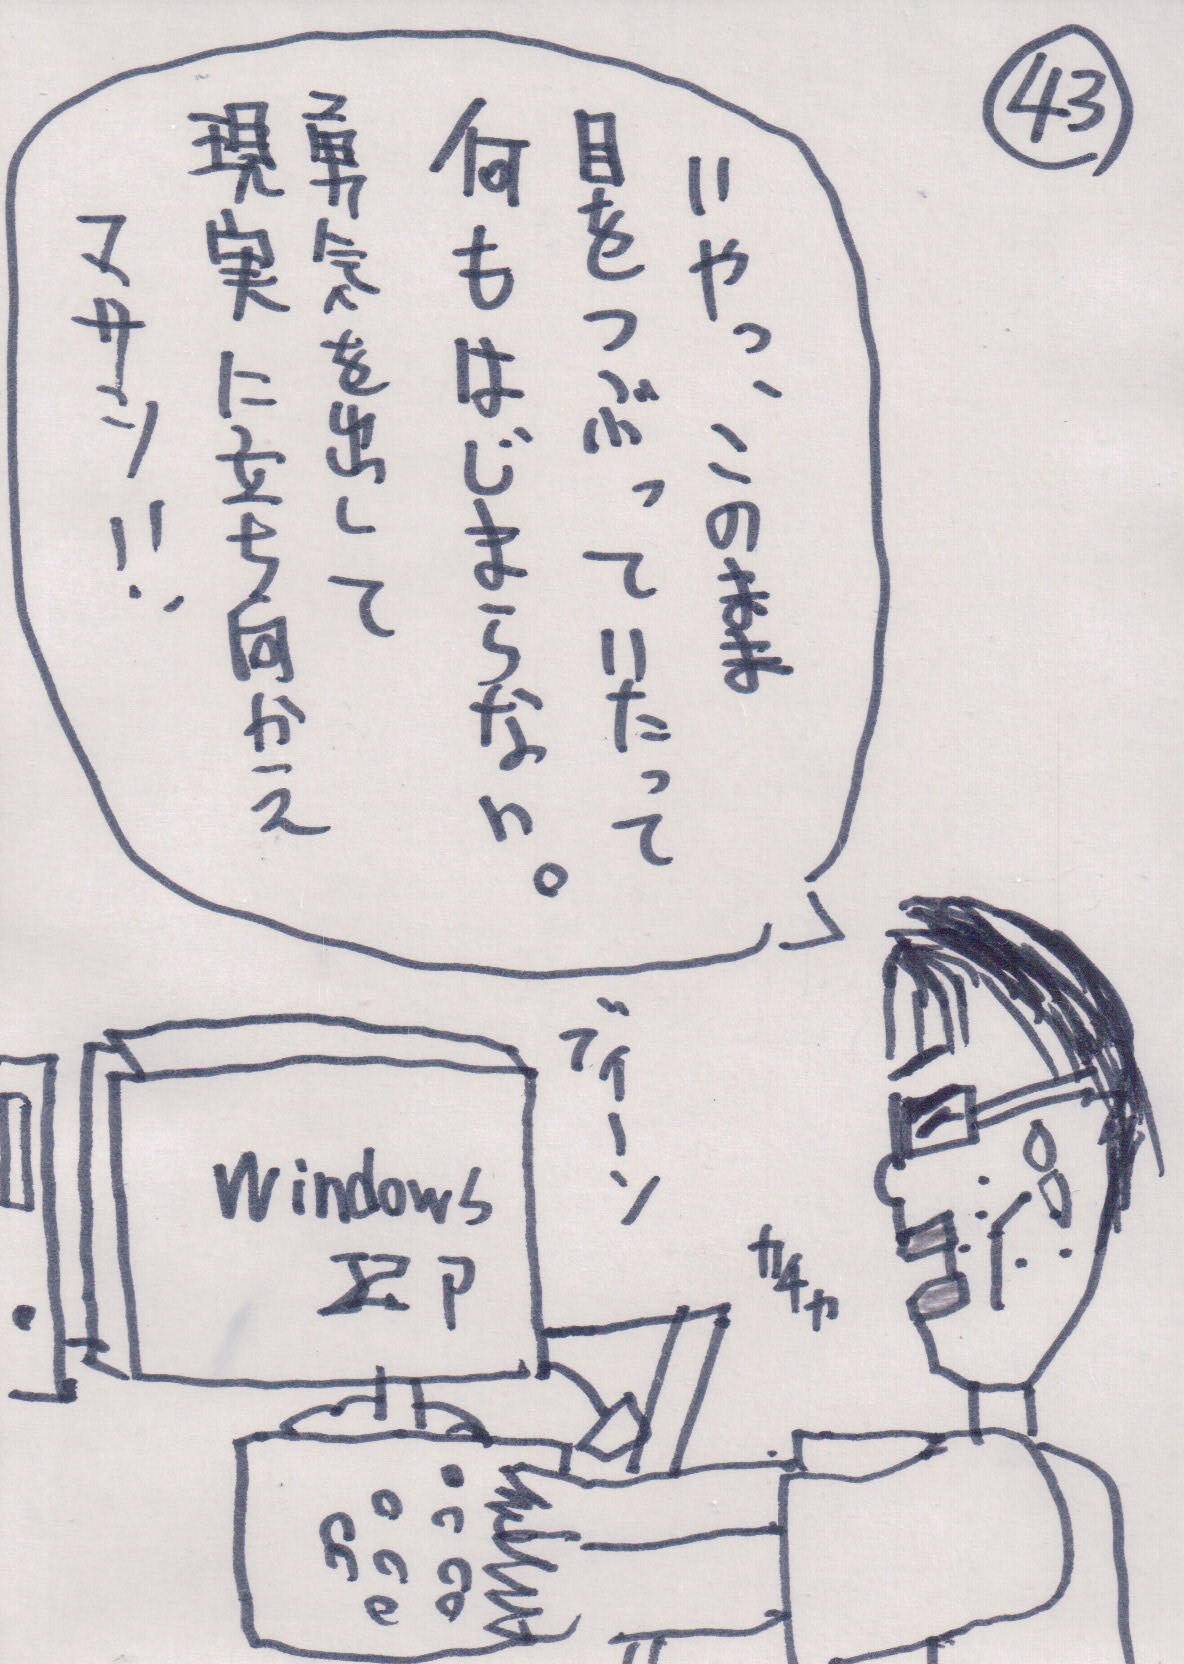 43
いやっ、このまま
目をつぶっていたって
何もはじまらない。
勇気を出して
現実に立ち向かえ
マサシ!!
ブイーン
カチャ
Windows
XP